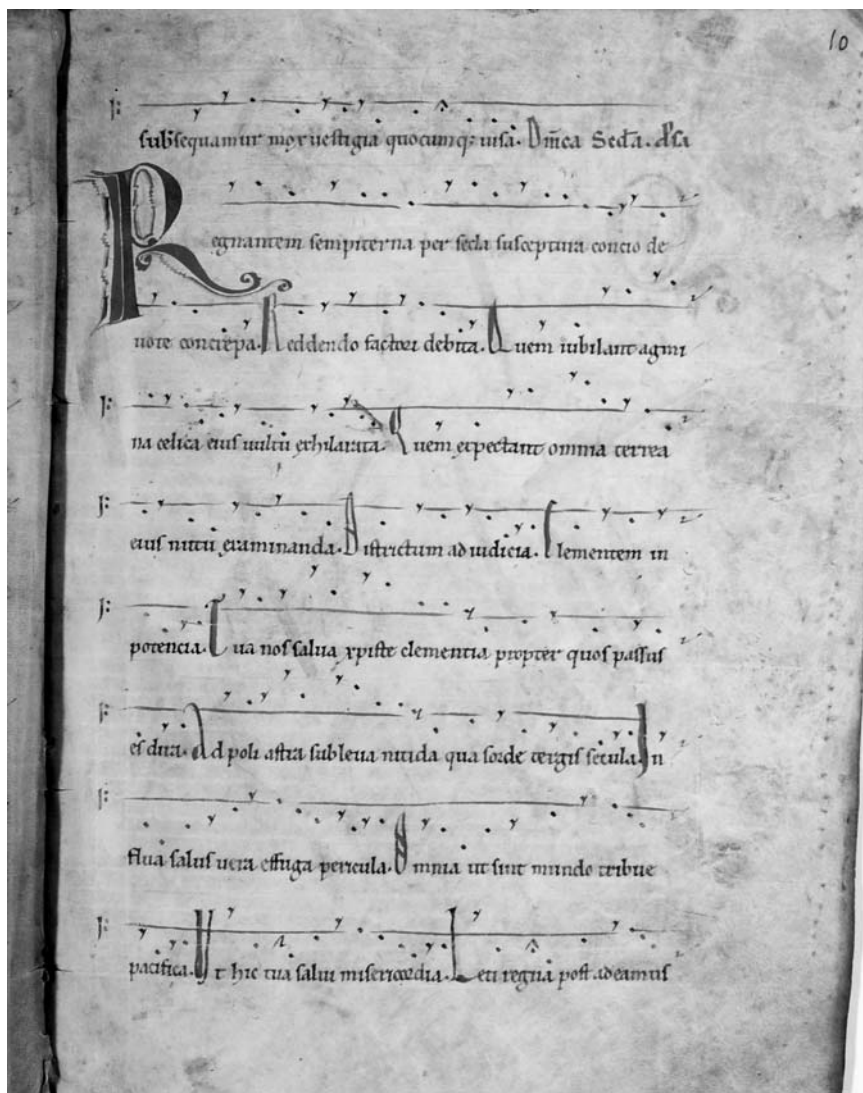 10
subsequamur mox uestigia quocumq; uisa. Dm̄ca Sed̄a. 
Regnantem sempiterna per secla susceptura concio de
uote concrepa. Reddendo factori debita. Quem iubilant agmi
na celica eius uultu exhilarata. Quem expectant omnia terrea
eius nutu examinanda. Districtum ad iudicia. Clementem in
potencia. Tua nos salua xpiste clementia propter quos passus
es dira. Ad poli astra subleua nitida qua sorde tergis secula. In
flua salus uera effuga pericula. Omnia ut sint munda tribue
pacifica. Ut hic tua salui misericordia. Leti regna post adeamus